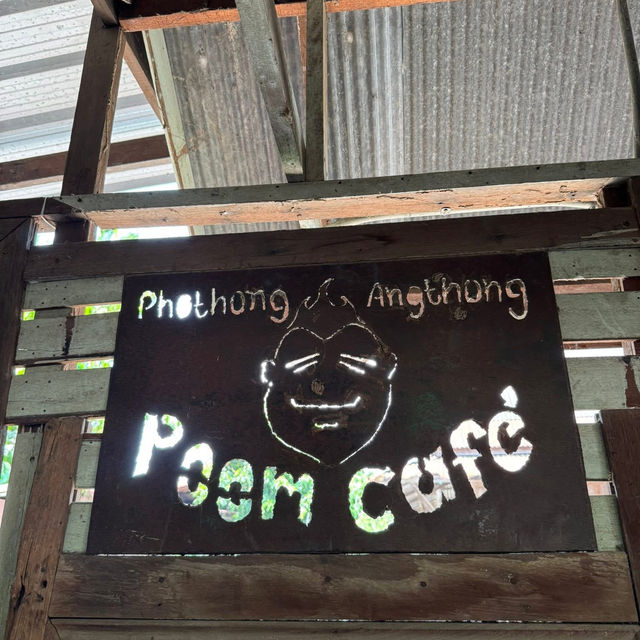 Phothong Angthong
Poom café